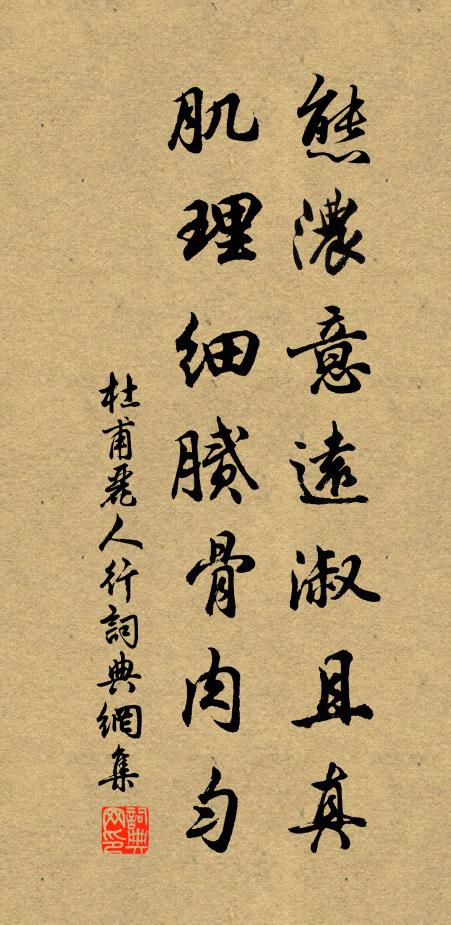 態濃意遠淑且真
肌理細膩骨肉勻
杜甫麗人行詞典網集
詞典網印